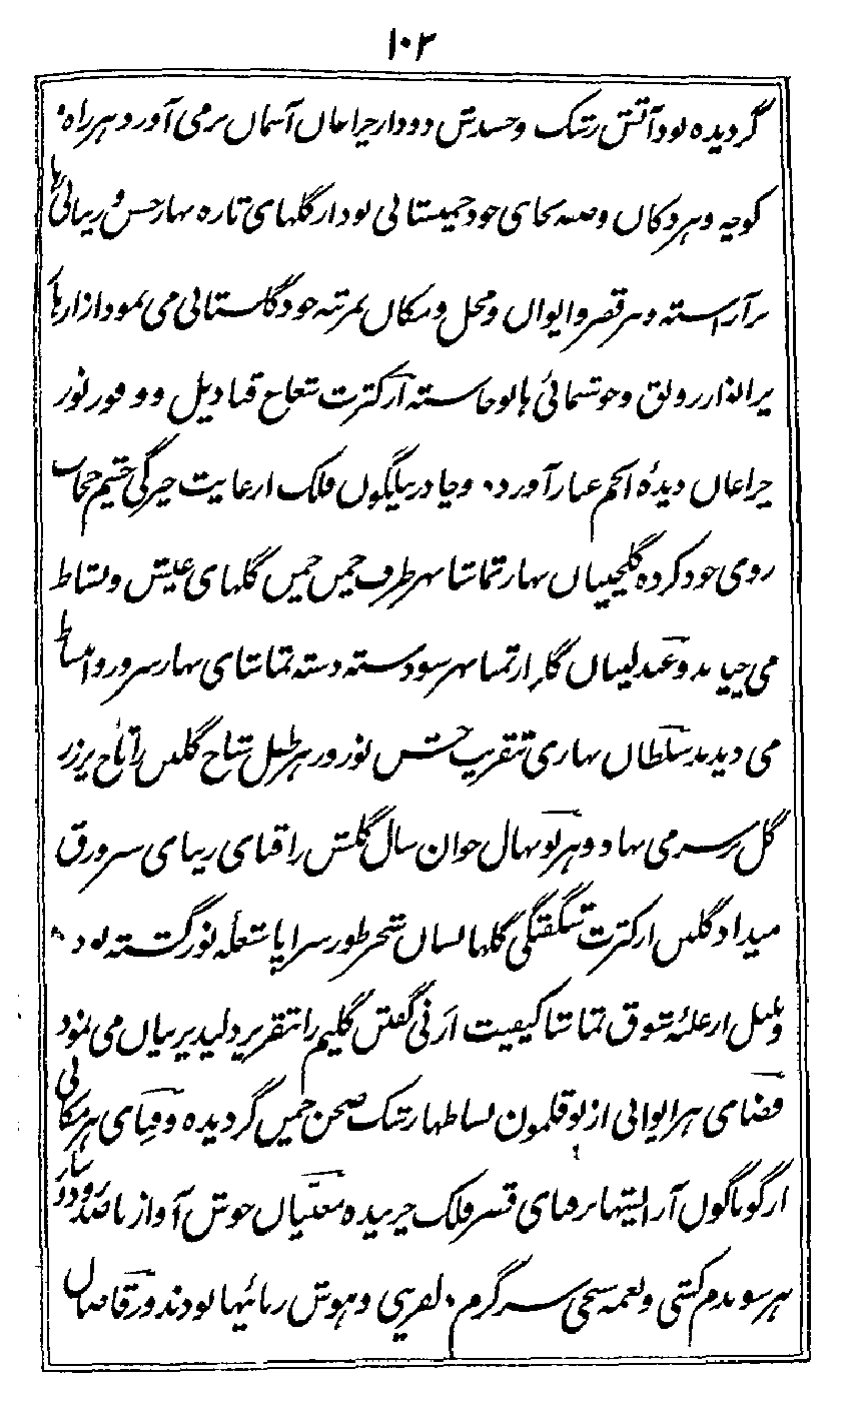 ۱۰۳
گردیده بود آتش رشک و حسدش دود از چراغان آسمان برمی آورد هر راه
کوچه و هر دکان و صفه بجای خود چمنستانی بود از گلهای تازه بهار حسن و زیبائی ها
برآراسته و هر قصر و ایوان و محل و مکان بمرتبه خود گلستانی می نمود از ازهار
رونق و خوشنمائی ها نوخاسته از کثرت شعاع قنادیل و وفور نور
چراغان دیدهٔ انجم غبار آورده و چادر نیلگون فلک از غایت خیرگی چشم حجاب
روی خود کرده گلچینان بهار تماشا بهر طرف چمن چمن گلهای عیش و نشاط
می چیدند و عندلیبان گلزار تمنا بهر سو دسته دسته تماشای بهار سرور و انبساط
می دیدند سلطان بهاری بتقریب جشن نوروز بر هر طفل شاخ گلبن را تاج پرزر
گل بر سر می نهاد و هر نونهال جوان سال گلشن را قبای زیبای سرورق
میداد گلبن از کثرت شگفتگی گلها بسان شجر طور سراپا شعله نور گشته بود
و بلبل از غلبهٔ شوق تماشا کیفیت ارنی گفتن کلیم را بتقریر دلپذیر بیان می نمود
فضای هر ایوانی از بوقلمون بساطها رشک صحن چمن گردیده و فنای هر مکانی
از گوناگون آرایشها بر فضای قصر فلک خربیده مغنیان خوش آواز با صد رود و ساز
هر سو بدم کشی و نغمه سنجی سرگرم دلفریبی و هوش ربائیها بودند و رقاصان